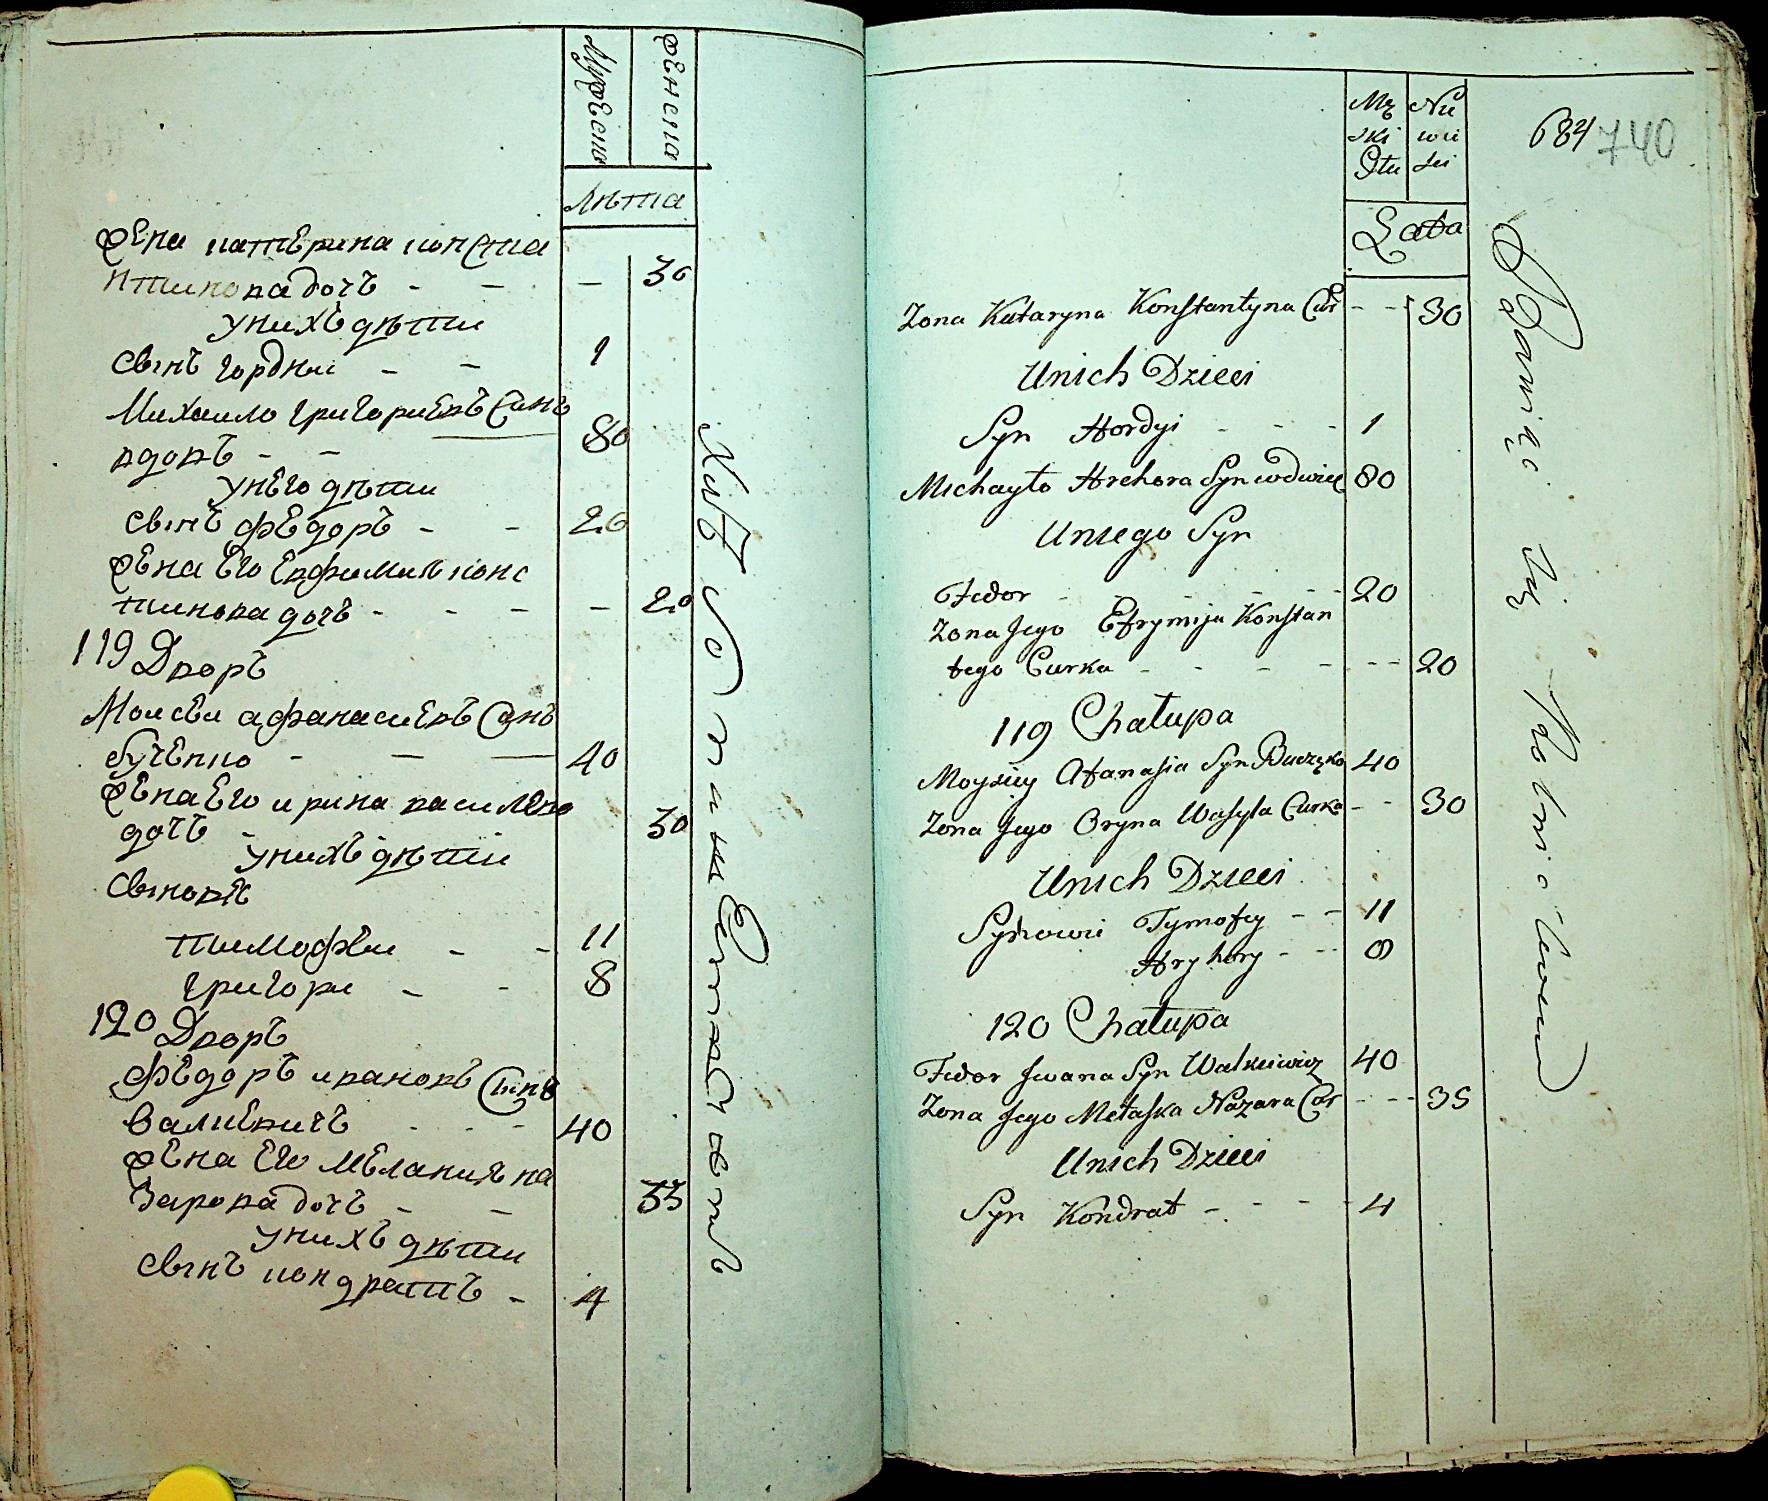 Мужеска
Женска
Лѣта
Жена катерина конста
нтинова дочъ - - - 30
у нихъ дѣти
сынъ гордѣи - - 1
Михаило григориевъ Сынъ
вдовъ - - 80
у него дѣти
сынъ Федоръ - - 26
Жена Его Евфимия конс
тинова дочъ - - - - 20
119 Дворъ
Моисеи афанасиевъ Сынъ
бученко - - - 40
Жена Его ирина василева
дочъ - 30
у нихъ дѣти
сыновѣ
тимофѣи - - 11
григори - - 8
120 Дворъ
Федоръ ивановъ Сынъ
валкевичъ - - - 40
Жена Его мелания на
зарова дочъ - - 35
у нихъ дѣти
сынъ кондратъ - 4
Mę
ski
Płu
Nie
wie
sci
684 740
Lata
Zona Kataryna Konstantyna Cur - - 30
Unich Dzieci
Syn Hordyi - - - 1
Michayło Hrehora Syn wdwiec 80
Uniego Syn
Fedor - - - - - 20
Zona Jego Efrymija Konstan
tego Curka - - - - - - 20
119 Chałupa
Moysiey Afanasia Syn Buczęko 40
Zona Jego Oryna Wasyla Curka - - 30
Unich Dzieci
Synowie Tymofey - - 11
Hryhory - - 8
120 Chałupa
Fedor Jwana Syn Walkiewicz 40
Zona Jego Metaska Nazara Cor - - - 35
Unich Dzieci
Syn Kondrat - - - - 4